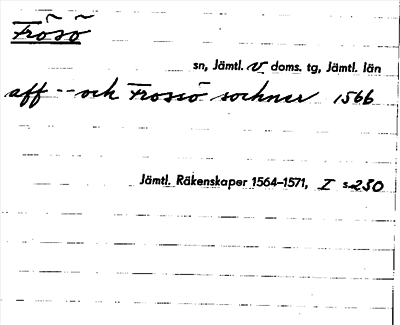 Frösö
sn, Jämtl. v. doms. tg, Jämtl. län
aff -- och Frossö sochner 1566
Jämtl. Räkenskaper 1564-1571, I s. 230